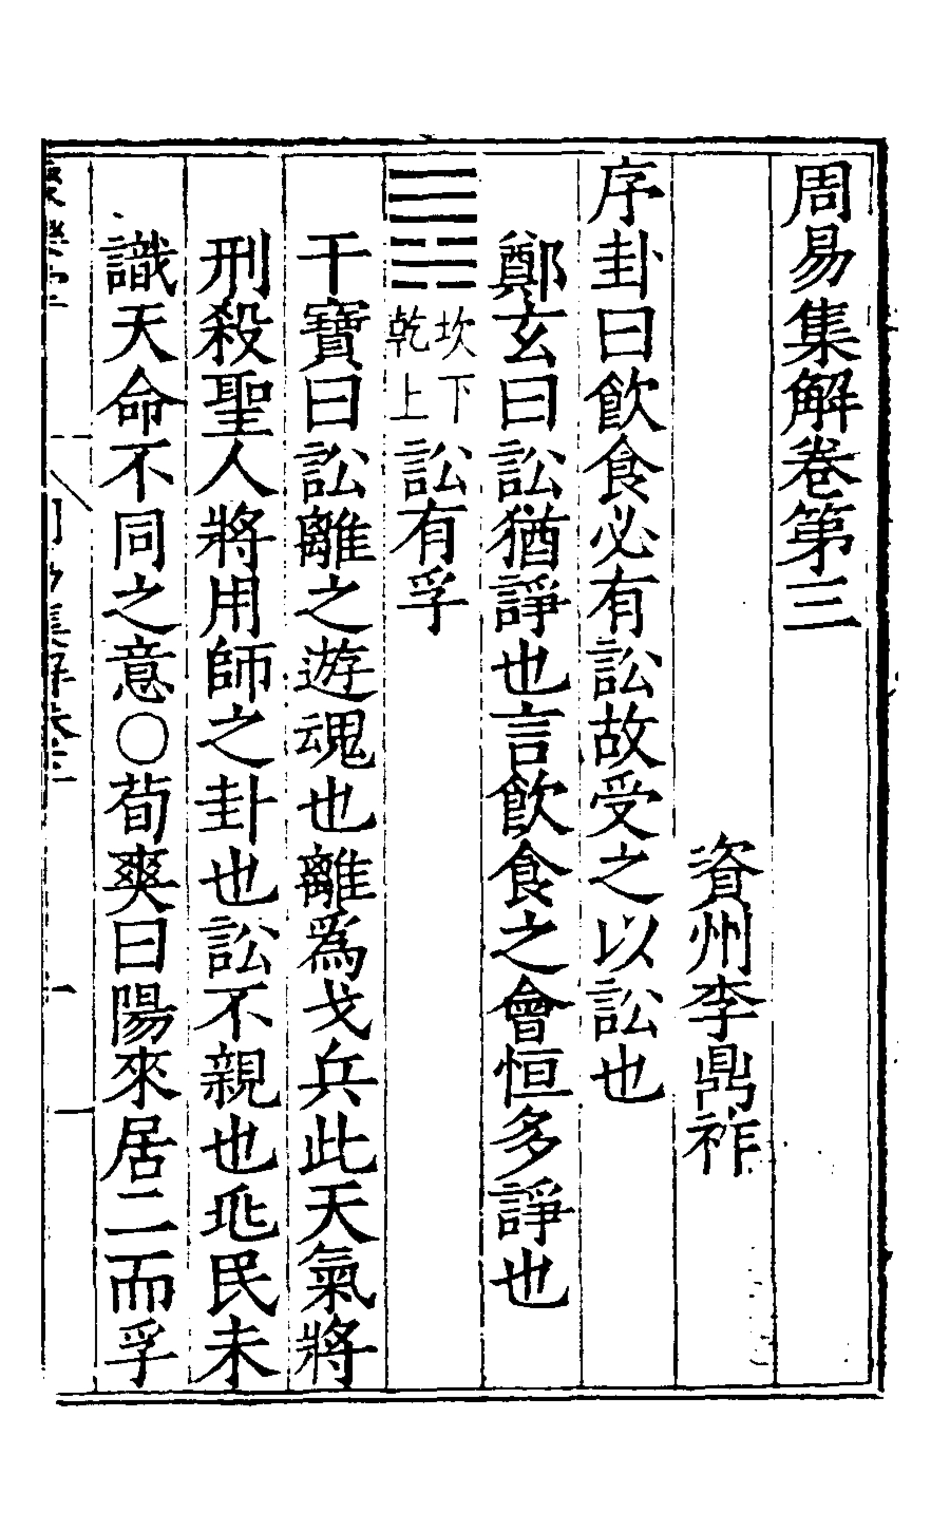 周易集解卷第三
資州李鼎祚
序卦曰飮食必有訟故受之以訟也
鄭玄曰訟猶諍也言飮食之會恒多諍也
䷅坎下乾上訟有孚
干寶曰訟離之遊魂也離爲戈兵此天氣將
刑殺聖人將用師之卦也訟不親也兆民未
識天命不同之意〇荀爽曰陽來居二而孚